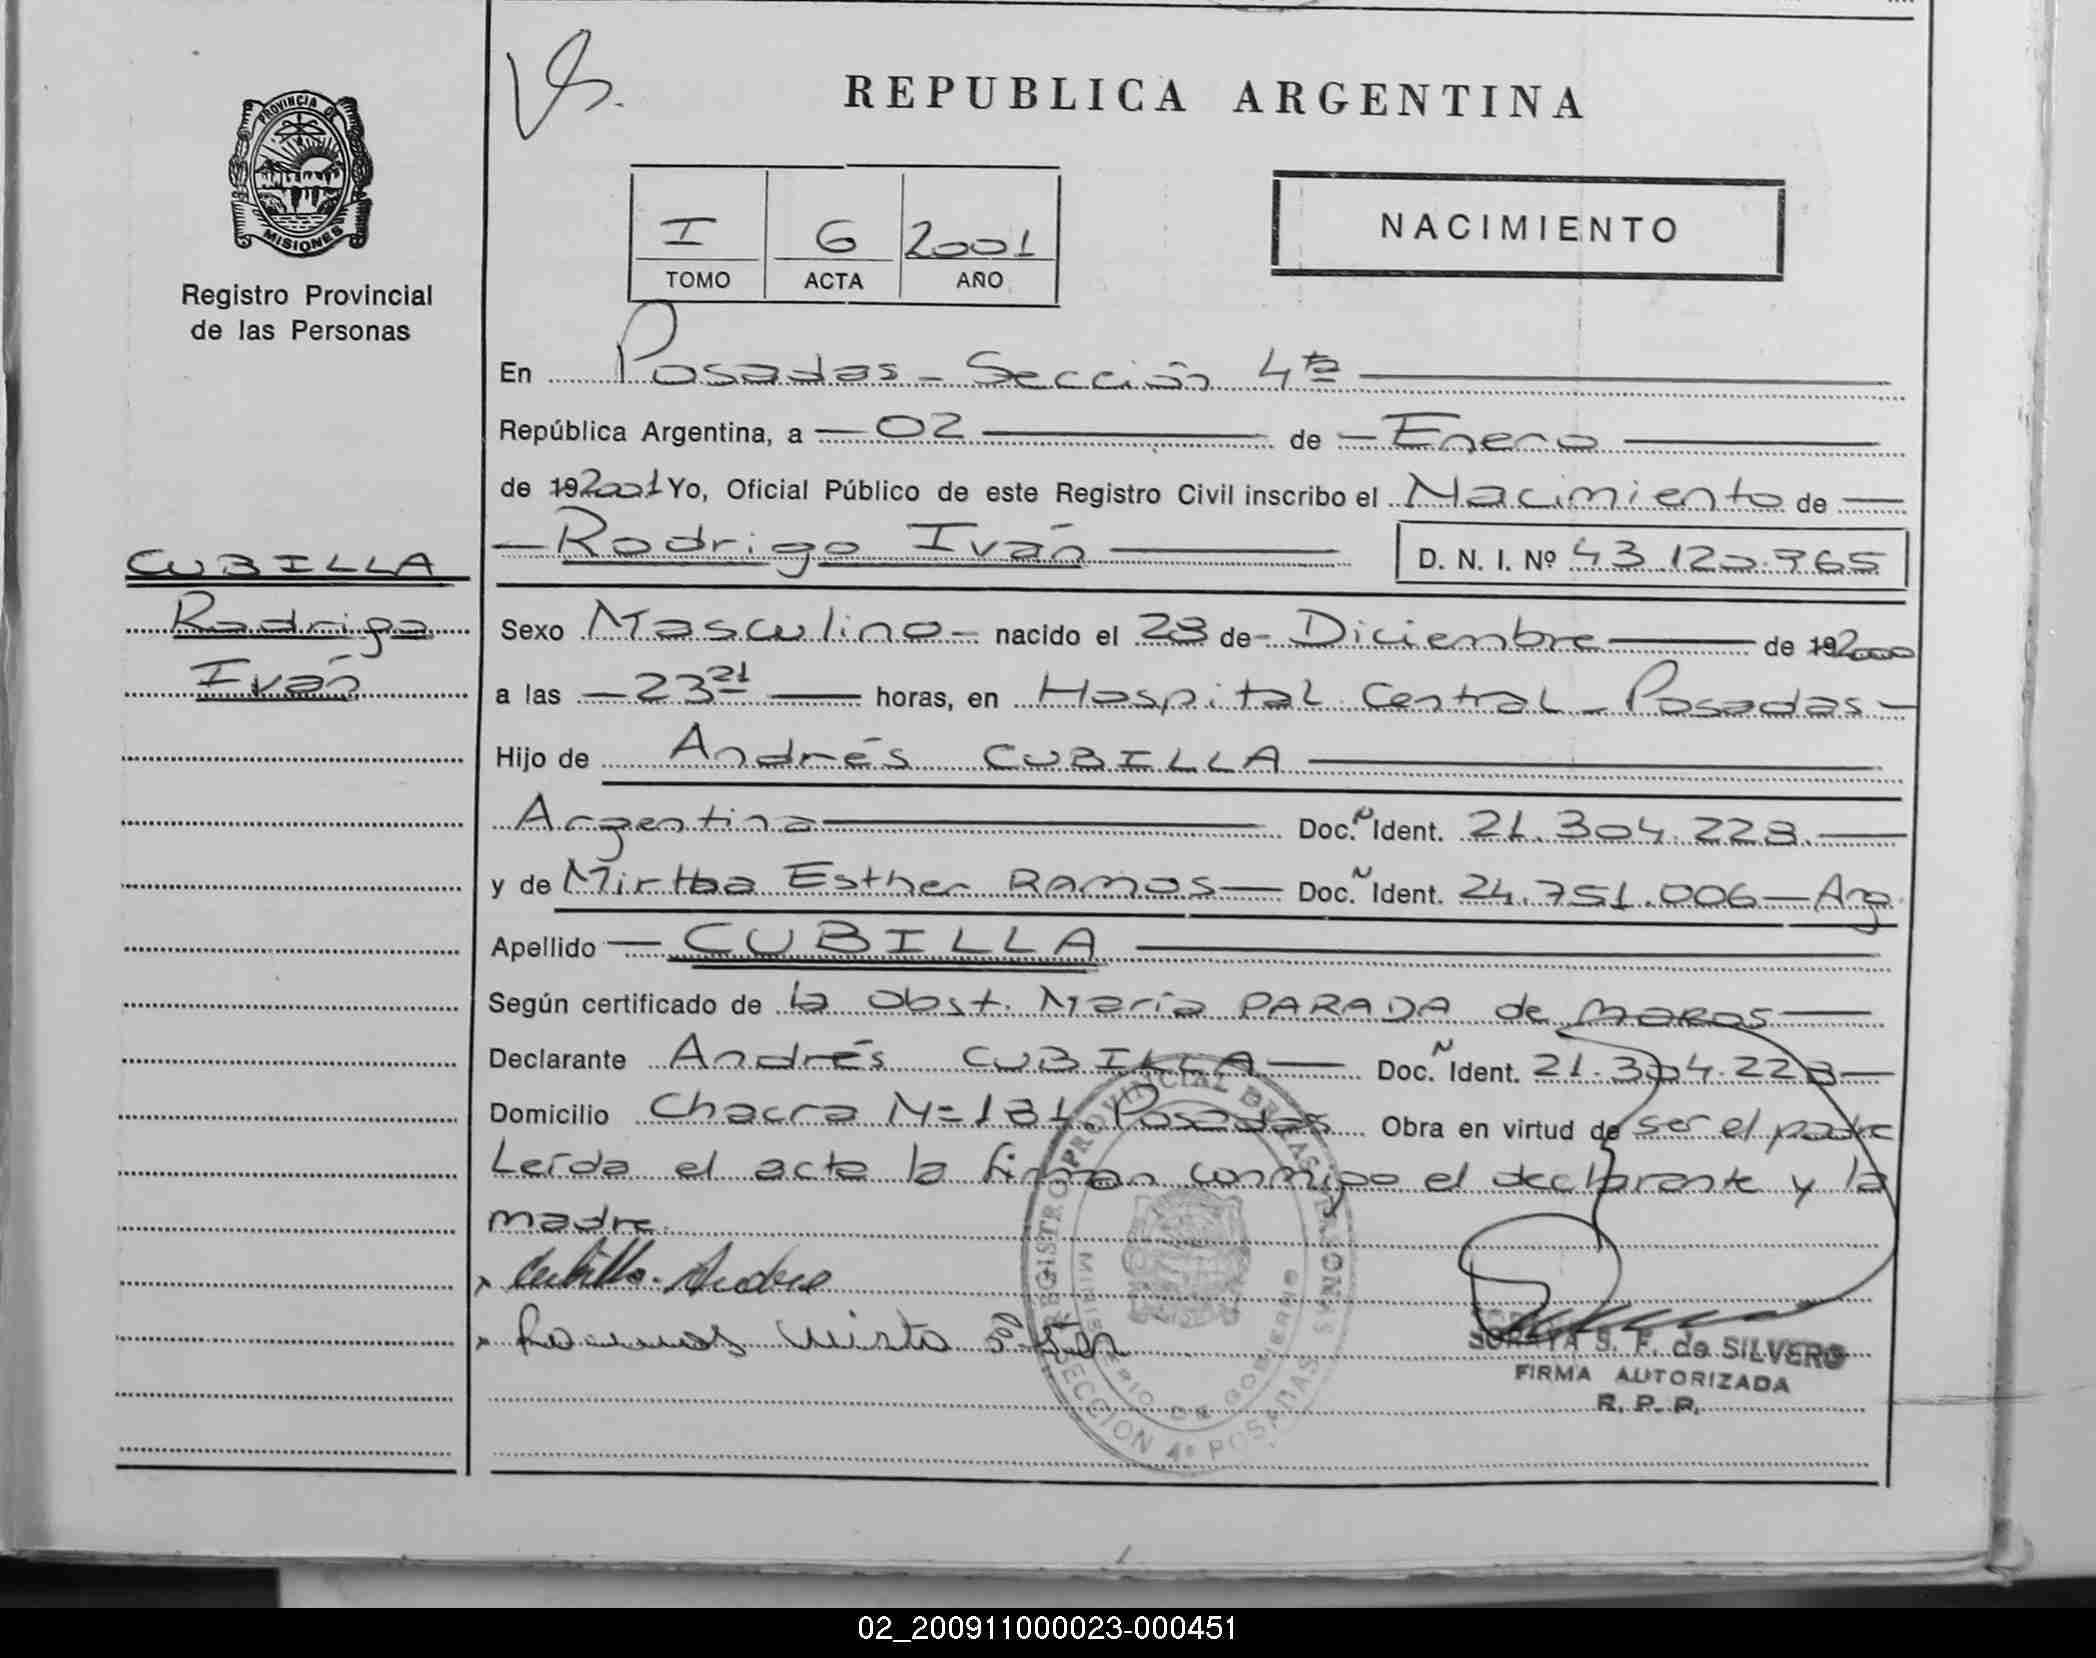 REPUBLICA ARGENTINA
PROVINCIA DE MISIONES
Registro Provincial
de las Personas
I 6 2001
TOMO ACTA AÑO
NACIMIENTO
En Posadas - Sección 4ta
República Argentina, a 02 de Enero
de 192001 Yo, Oficial Público de este Registro Civil inscribo el Nacimiento de
Rodrigo Iván D. N. I. Nº 43.120.765
CUBILLA
Rodrigo
Iván
Sexo Masculino nacido el 28 de Diciembre de 192000
a las 23 21 horas, en Hospital Central - Posadas -
Hijo de Andrés CUBILLA
Argentina Doc. N Ident. 21.304.228.
y de Mirtha Esther RAMOS Doc. N Ident. 24.751.006 - Arg.
Apellido CUBILLA
Según certificado de la Obst. María PARADA de MOROS
Declarante Andrés CUBILLA Doc. N Ident. 21.304.228
Domicilio Chacra Nº 181. Posadas Obra en virtud de ser el padre
Leída el acta la firman conmigo el declarante y la
madre.
Cubilla. Andres
Ramos Mirta Ester
REGISTRO PROVINCIAL DE LAS PERSONAS
MINISTERIO DE GOBIERNO
SECCION 4º POSADAS
SORAYA S. F. de SILVERO
FIRMA AUTORIZADA
R. P. P.
02_200911000023-000451